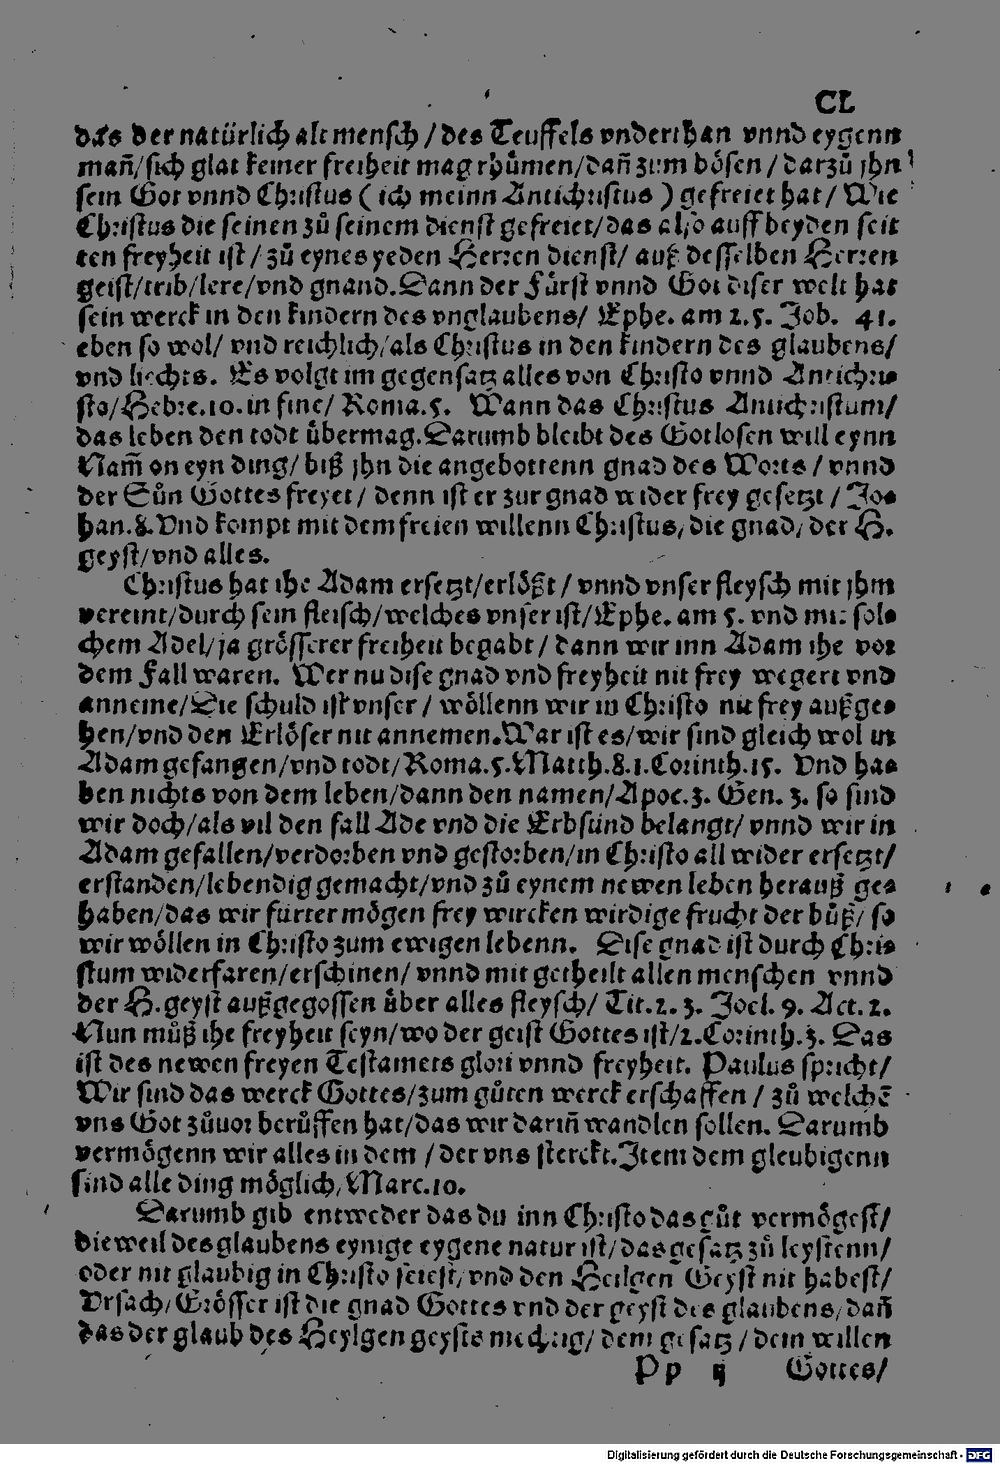 CL
das der natürlich alt mensch / des Teuffels vnderthan vnnd eygenn
mañ/sich glat keiner freiheit mag rhůmen/dañ zum bösen / darzů jhn
sein Got vnnd Christus ( ich meinn Antichristus ) gefreiet hat / Wie
Christus die seinen zů seinem dienst gefreiet/das also auff beyden seit
ten freyheit ist / zů eynes yeden Herren dienst/ auß desselben Herren
geist/trib/lere/vnd gnand. Dann der Fürst vnnd Got diser welt hat
sein werck in den kindern des vnglaubens/ Ephe. am 2.5. Job. 41.
eben so wol/ vnd reichlich/als Christus in den kindern des glaubens/
vnd liechts. Es volgt im gegensatz alles von Christo vnnd Antichri-
sto/Hebre.10. in fine/ Roma.5. Wann das Christus Antichristum/
das leben den todt übermag. Darumb bleibt des Gotlosen will eynn
Nam̃ on eyn ding/ biß jhn die angebottenn gnad des Worts / vnnd
der Sůn Gottes freyet / denn ist er zur gnad wider frey gesetzt / Jo-
han.8. Vnd kompt mit dem freien willenn Christus, die gnad, der H.
geyst/vnd alles.
Christus hat ihe Adam ersetzt/erlößt / vnnd vnser fleysch mit jhm
vereint/durch sein fleisch/welches vnser ist/Ephe. am 5. vnd mit sol-
chem Adel/ja grösserer freiheit begabt / dann wir inn Adam ihe vor
dem Fall waren. Wer nu dise gnad vnd freyheit nit frey wegert vnd
anneme/Die schuld ist vnser / wöllenn wir in Christo nit frey außge-
hen/vnd den Erlöser nit annemen. War ist es/wir sind gleich wol in
Adam gefangen/vnd todt/Roma.5. Matth.8.1. Corinth.15. Vnd ha-
ben nichts von dem leben/dann den namen/Apoc.3. Gen. 3. so sind
wir doch/als vil den fall Ade vnd die Erbsünd belangt/ vnnd wir in
Adam gefallen/verdorben vnd gestorben/in Christo all wider ersetzt/
erstanden/lebendig gemacht/vnd zů eynem newen leben herauß ge-
haben/das wir fürter mögen frey wircken wirdige frucht der bůß/ so
wir wöllen in Christo zum ewigen lebenn. Dise gnad ist durch Chri-
stum widerfaren/erschinen/ vnnd mit getheilt allen menschen vnnd
der H. geyst außgegossen über alles fleysch/ Tit.2. 3. Joel. 9. Act. 2.
Nun můß ihe freyheit seyn/wo der geist Gottes ist/2. Corinth.3. Das
ist des newen freyen Testamets glori vnnd freyheit. Paulus spricht/
Wir sind das werck Gottes/zum gůten werck erschaffen / zů welchē
vns Got zůuor berůffen hat/das wir dariñ wandlen sollen. Darumb
vermögenn wir alles in dem / der vns sterckt. Item dem gleubigenn
sind alle ding möglich, Marc.10.
Darumb gib entweder das du inn Christo das gůt vermögest/
dieweil des glaubens eynige eygene natur ist/das gesatz zů leystenn/
oder nit glaubig in Christo seiest, vnd den Heilgen Geyst nit habest/
Vrsach, Grösser ist die gnad Gottes vnd der geyst des glaubens, dañ
das der glaub des Heylgen geysts mechtig/ dem gesatz / dem willen
Pp ij Gottes/
Digitalisierung gefördert durch die Deutsche Forschungsgemeinschaft - DFG